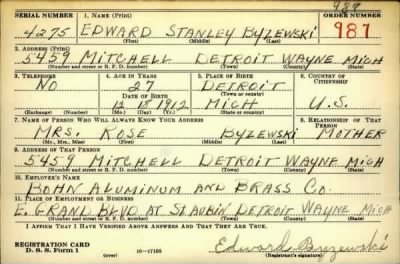 487
SERIAL NUMBER 1. NAME (Print) ORDER NUMBER
4275 EDWARD STANLEY BYZEWSKI 987
(First) (Middle) (Last)
2. ADDRESS (Print)
5459 MITCHELL DETROIT WAYNE MICH
(Number and street or R. F. D. number) (Town) (County) (State)
3. TELEPHONE 4. AGE IN YEARS 5. PLACE OF BIRTH 6. COUNTRY OF CITIZENSHIP
NO 27 DETROIT
DATE OF BIRTH (Town or county)
12 18 1912 MICH U.S.
(Exchange) (Number) (Mo.) (Day) (Yr.) (State or country)
7. NAME OF PERSON WHO WILL ALWAYS KNOW YOUR ADDRESS 8. RELATIONSHIP OF THAT PERSON
MRS. ROSE BYZEWSKI MOTHER
(Mr., Mrs., Miss) (First) (Middle) (Last)
9. ADDRESS OF THAT PERSON
5459 MITCHELL DETROIT WAYNE MICH
(Number and street or R. F. D. number) (Town) (County) (State)
10. EMPLOYER'S NAME
BOHN ALUMINUM AND BRASS CO.
11. PLACE OF EMPLOYMENT OR BUSINESS
E. GRAND BLVD AT ST. AUBIN DETROIT WAYNE MICH
(Number and street or R. F. D. number) (Town) (County) (State)
I AFFIRM THAT I HAVE VERIFIED ABOVE ANSWERS AND THAT THEY ARE TRUE.
REGISTRATION CARD
D. S. S. Form 1 (over) 16—17105 Edward Byzewski
(Registrant's signature)